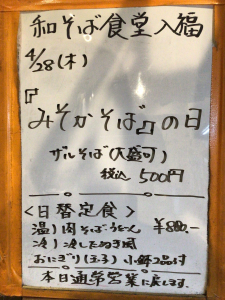 和そば食堂入福
4/28(木)
『みそかそば』の日
ザルそば(大盛可)
税込 500円
<日替定食>
温)肉そばうどん ¥880-
冷)冷したぬき風
おにぎり(玉子)小鉢2品付
本日通常営業に戻します。